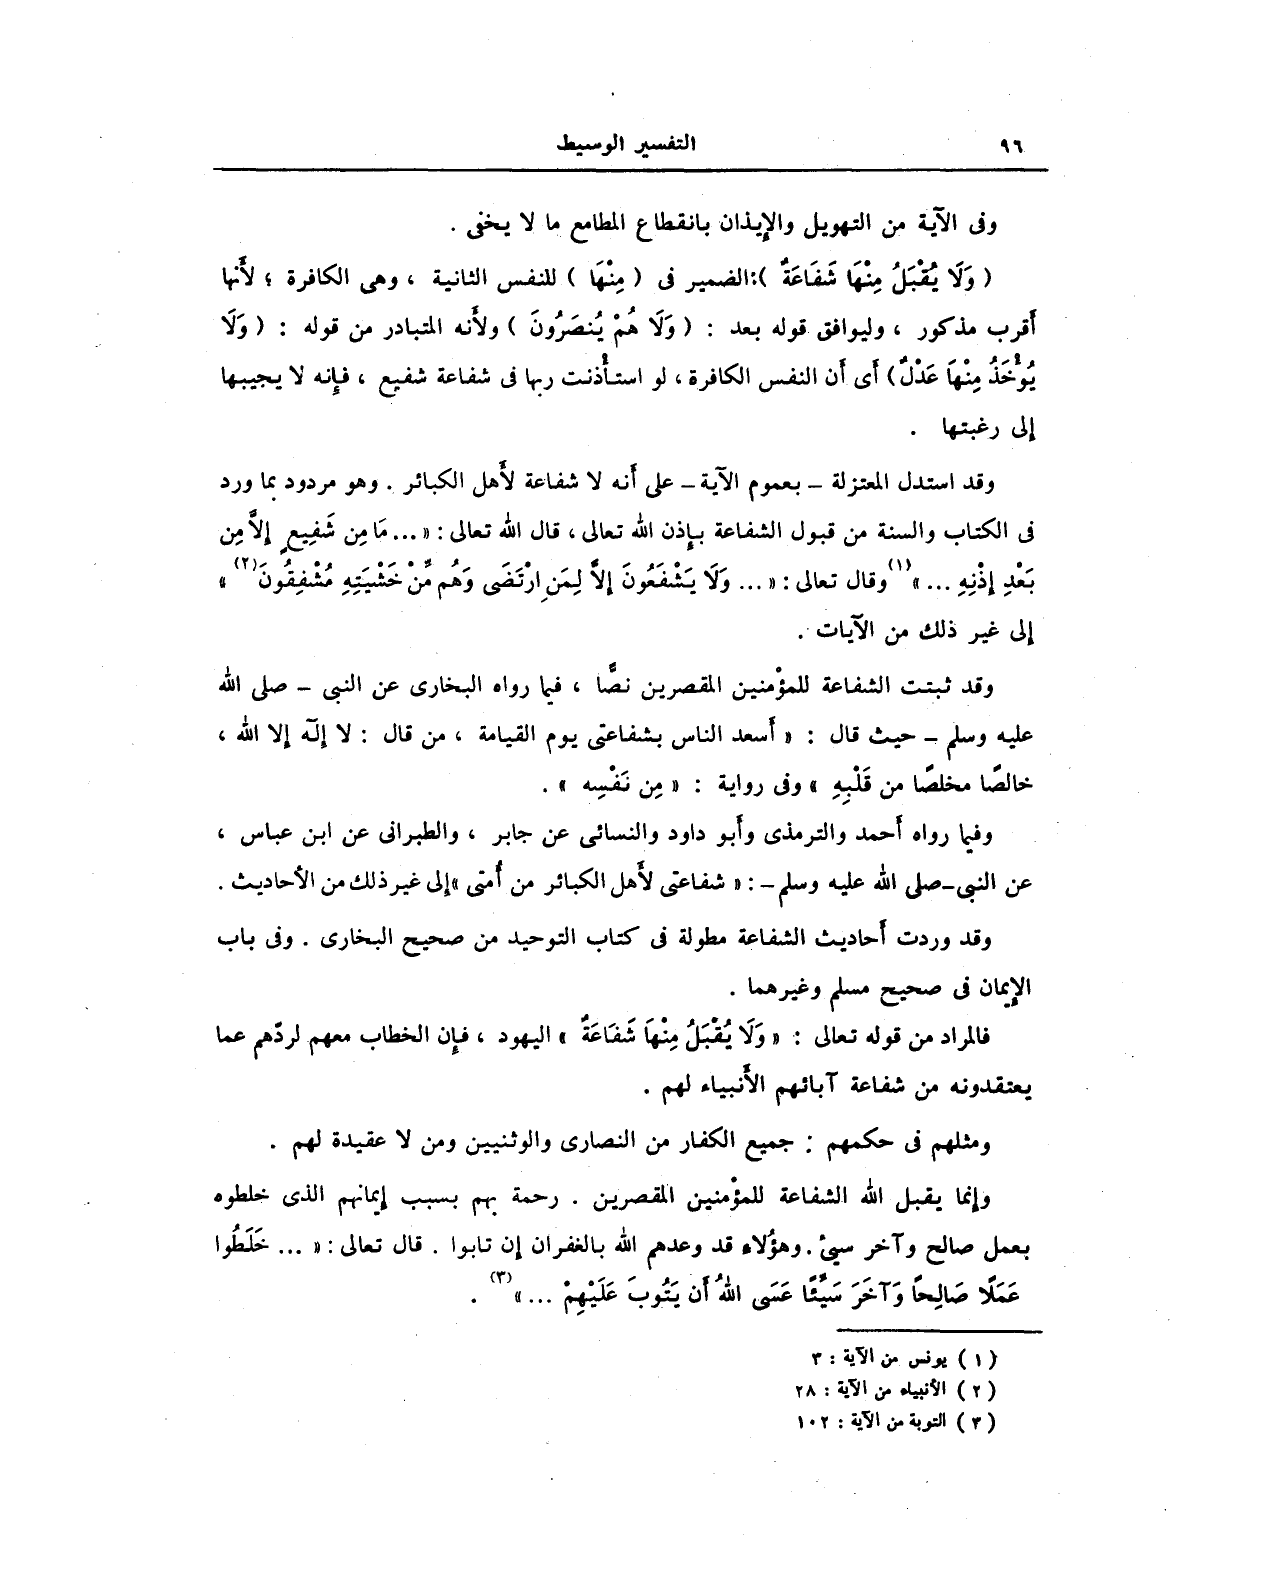 ٩٦ التفسير الوسيط
وفى الآية من التهويل والإيذان بانقطاع المطامع ما لا يخفى .
( وَلَا يُقْبَلُ مِنْهَا شَفَاعَةٌ ): الضمير فى ( مِنْهَا ) للنفس الثانية ، وهى الكافرة ؛ لأَنها
أقرب مذكور ، وليوافق قوله بعد : ( وَلَا هُمْ يُنصَرُونَ ) ولأَنه المتبادر من قوله : ( وَلَا
يُؤْخَذُ مِنْهَا عَدْلٌ ) أَى أَن النفس الكافرة ، لو استأْذنت ربها فى شفاعة شفيع ، فإِنه لا يجيبها
إلى رغبتها .
وقد استدل المعتزلة – بعموم الآية – على أَنه لا شفاعة لأَهل الكبائر . وهو مردود بما ورد
فى الكتاب والسنة من قبول الشفاعة بإِذن الله تعالى ، قال الله تعالى : « ... مَا مِن شَفِيعٍ إِلاَّ مِن
بَعْدِ إِذْنِهِ ... »(١) وقال تعالى : « ... وَلَا يَشْفَعُونَ إِلاَّ لِمَنِ ارْتَضَى وَهُم مِّنْ خَشْيَتِهِ مُشْفِقُونَ(٢) »
إلى غير ذلك من الآيات .
وقد ثبتت الشفاعة للمؤْمنين المقصرين نصًّا ، فيما رواه البخارى عن النبى – صلى الله
عليه وسلم – حيث قال : « أَسعد الناس بشفاعتى يوم القيامة ، من قال : لا إلَه إلا الله ،
خالصًا مخلصًا من قَلْبِهِ » وفى رواية : « مِن نَفْسِه » .
وفيما رواه أَحمد والترمذى وأَبو داود والنسائى عن جابر ، والطبرانى عن ابن عباس ،
عن النبى – صلى الله عليه وسلم – : « شفاعتى لأَهل الكبائر من أُمتى » إلى غير ذلك من الأَحاديث .
وقد وردت أَحاديث الشفاعة مطولة فى كتاب التوحيد من صحيح البخارى . وفى باب
الإِيمان فى صحيح مسلم وغيرهما .
فالمراد من قوله تعالى : « وَلَا يُقْبَلُ مِنْهَا شَفَاعَةٌ » اليهود ، فإِن الخطاب معهم لردّهم عما
يعتقدونه من شفاعة آبائهم الأَنبياء لهم .
ومثلهم فى حكمهم : جميع الكفار من النصارى والوثنيين ومن لا عقيدة لهم .
وإنما يقبل الله الشفاعة للمؤْمنين المقصرين . رحمة بهم بسبب إيمانهم الذى خلطوه
بعمل صالح وآخر سيئ . وهؤُلاء قد وعدهم الله بالغفران إن تابوا . قال تعالى : « ... خَلَطُوا
عَمَلًا صَالِحًا وَآخَرَ سَيِّئًا عَسَى اللهُ أَن يَتُوبَ عَلَيْهِمْ ... »(٣) .
( ١ ) يونس من الآية : ٣
( ٢ ) الأنبياء من الآية : ٢٨
( ٣ ) التوبة من الآية : ١٠٢